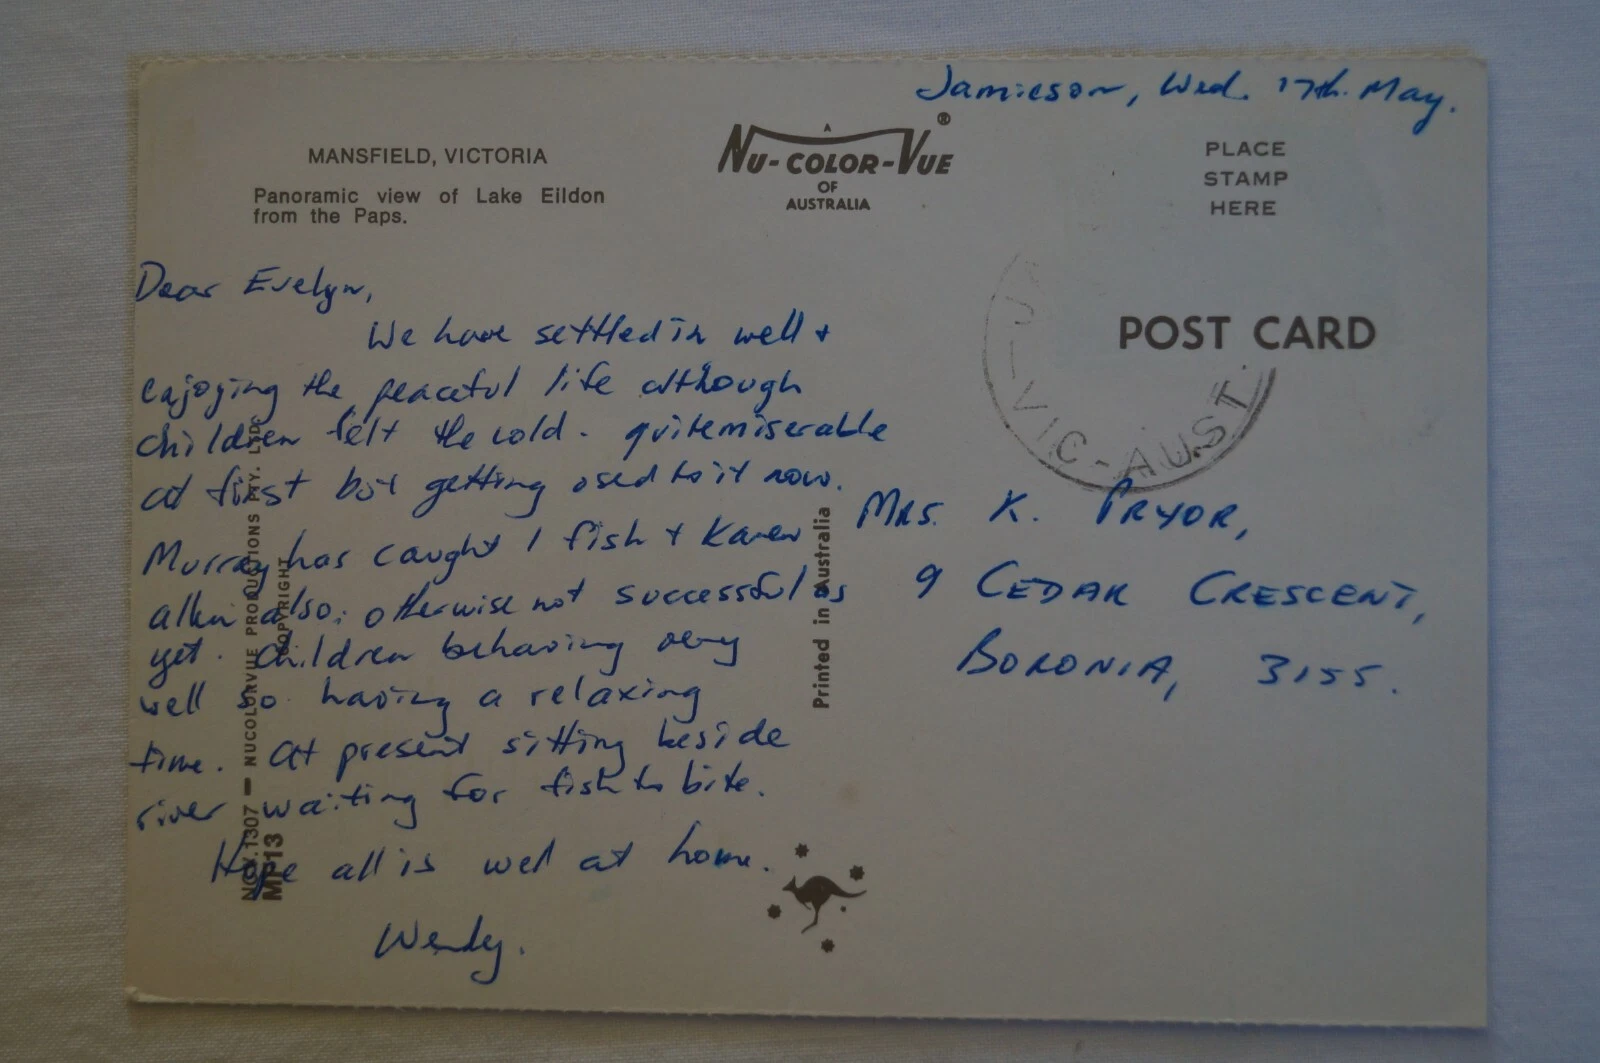 Jamieson, Wed. 17th. May.
MANSFIELD, VICTORIA
Panoramic view of Lake Eildon
from the Paps.
A
NU-COLOR-VUE®
OF
AUSTRALIA
PLACE
STAMP
HERE
POST CARD
VIC-AUST.
Dear Evelyn,
We have settled in well +
enjoying the peaceful life although
children felt the cold - quite miserable
at first but getting used to it now.
Murray has caught 1 fish + Karen
also; otherwise not successful as
yet. Children behaving very
well so having a relaxing
time. At present sitting beside
river waiting for fish to bite.
Hope all is well at home.
Wendy.
MRS. K. PRYOR,
9 CEDAR CRESCENT,
BORONIA, 3155.
NCV.1307 — NUCOLORVUE PRODUCTIONS PTY. LTD.
COPYRIGHT
MP13
Printed in Australia